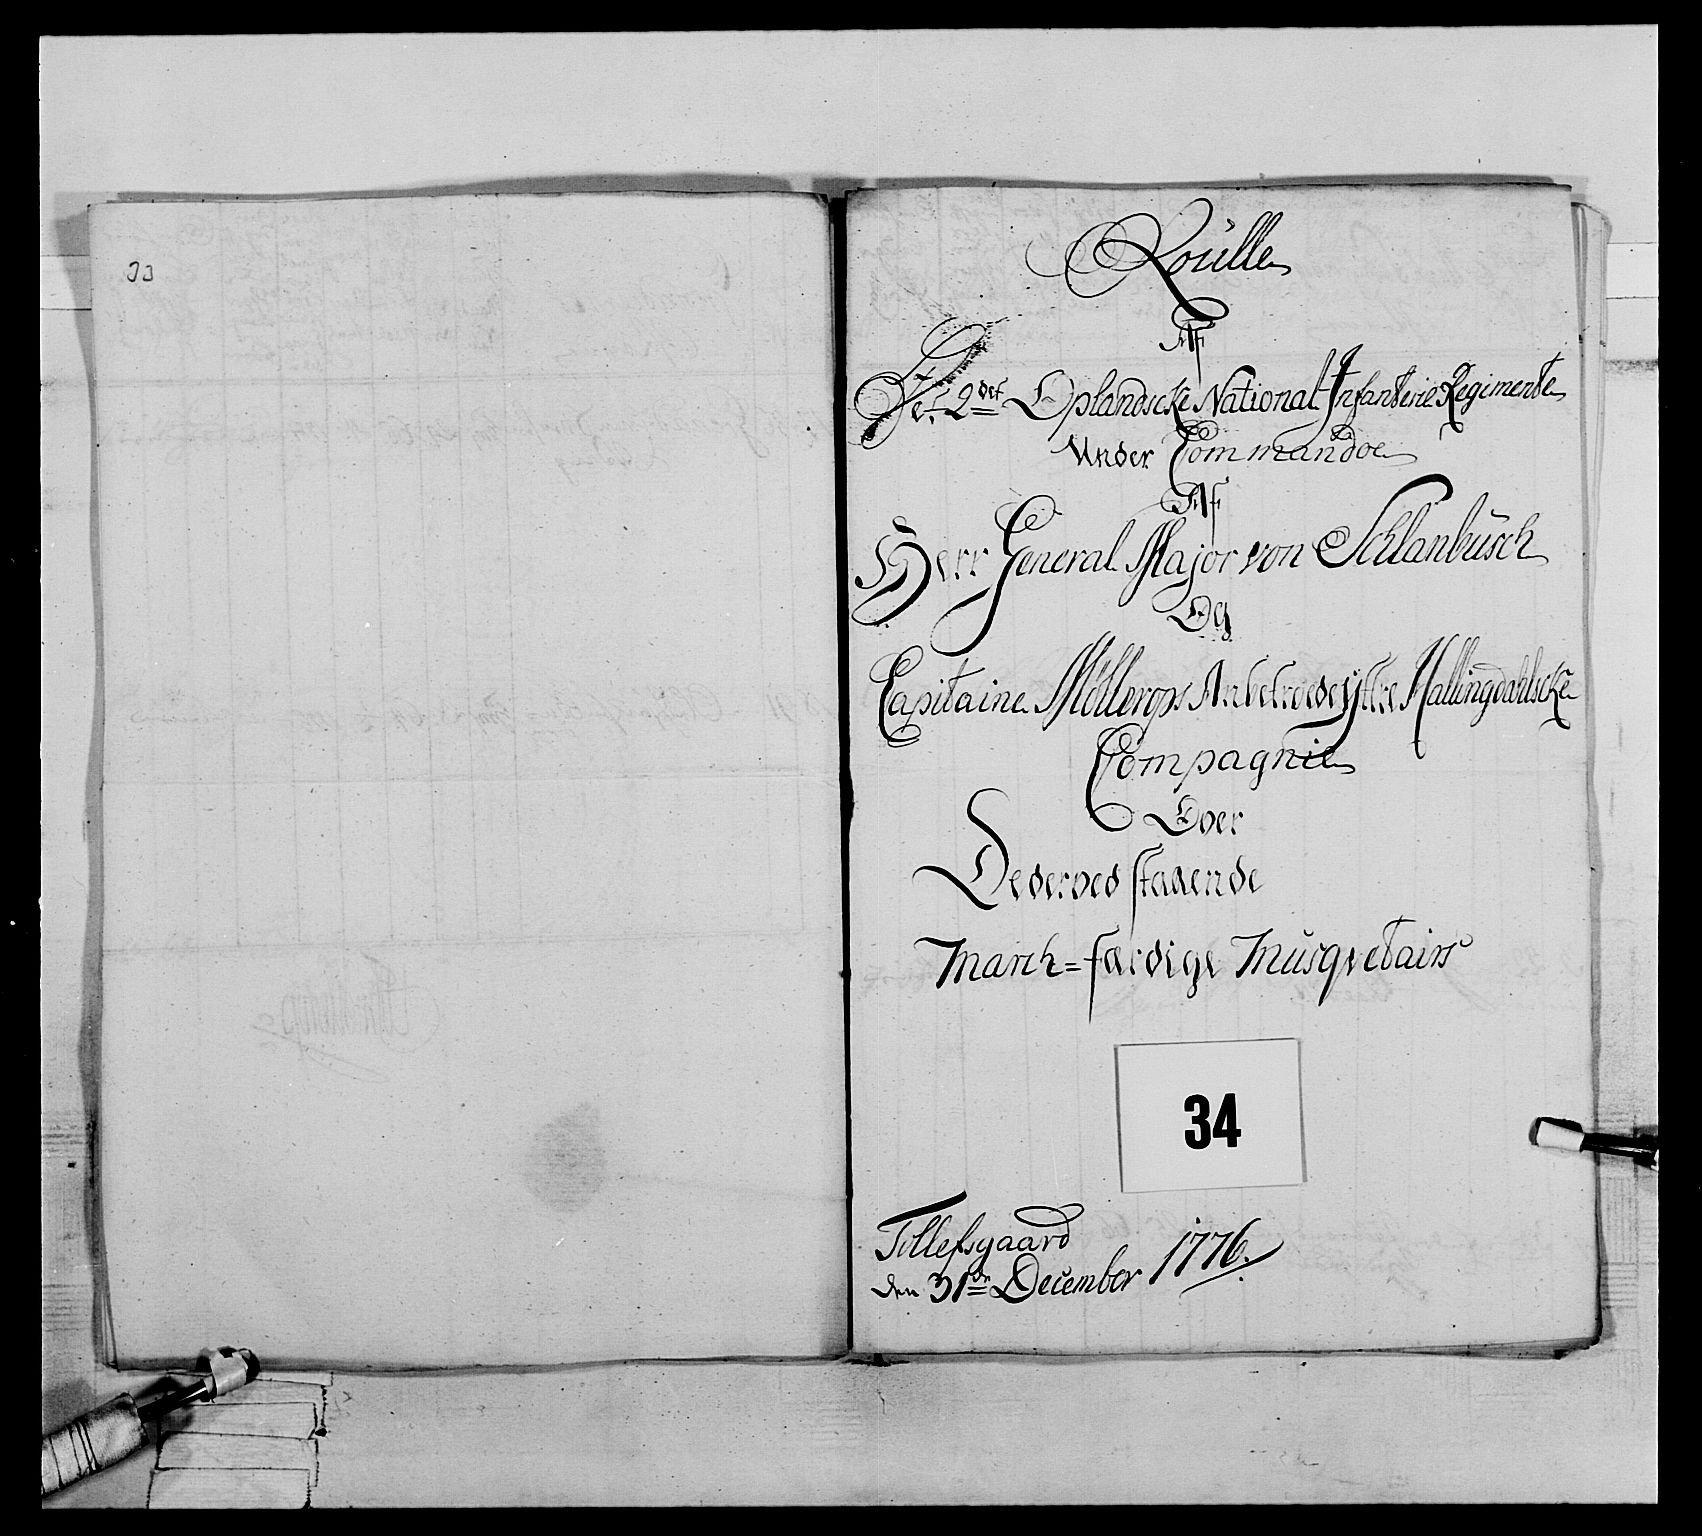 33
Roülle
Af
Det 2det Oplandscke National Infanterie Regimente
Under Commandoe
Af
Herr General Major von Schlanbüsch
Og
Capitaine Möllerops Anbetroede yttre Hallingdahlscke
Compagnie
Over
De derved staaende
March=færdige Musqvetairs
34
Tillefsgaard
den 31de December 1776.